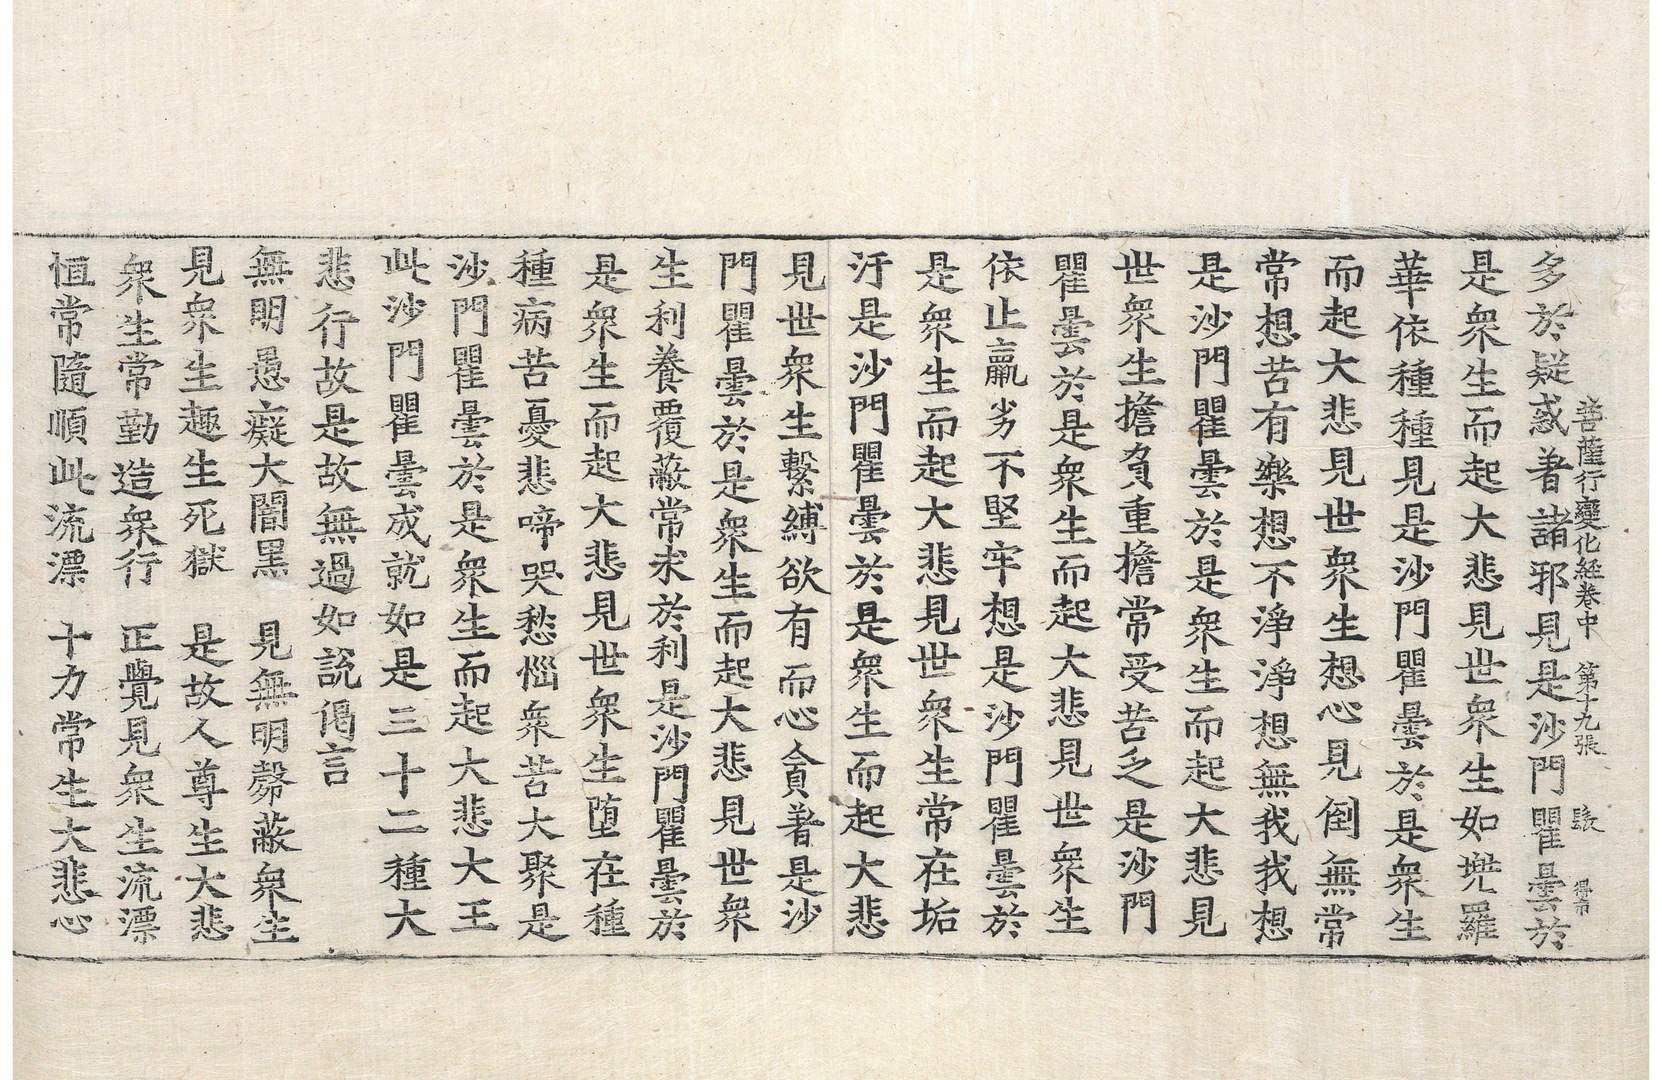 菩薩行變化經卷中 第十九張
多於疑惑著諸邪見是沙門瞿曇於
是衆生而起大悲見世衆生如兠羅
華依種種見是沙門瞿曇於是衆生
而起大悲見世衆生想心見倒無常
常想苦有樂想不淨淨想無我我想
是沙門瞿曇於是衆生而起大悲見
世衆生擔負重擔常受苦乏是沙門
瞿曇於是衆生而起大悲見世衆生
依止羸劣不堅牢想是沙門瞿曇於
是衆生而起大悲見世衆生常在垢
汙是沙門瞿曇於是衆生而起大悲
見世衆生繫縛欲有而心貪著是沙
門瞿曇於是衆生而起大悲見世衆
生利養覆蔽常求於利是沙門瞿曇於
是衆生而起大悲見世衆生堕在種
種病苦憂悲啼哭愁惱衆苦大聚是
沙門瞿曇於是衆生而起大悲大王
此沙門瞿曇成就如是三十二種大
悲行故是故無過如說偈言
無明愚癡大闇黑 見無明㲉蔽衆生
見衆生趣生死獄 是故人尊生大悲
衆生常勤造衆行 正覺見衆生流漂
恒常隨順此流漂 十力常生大悲心